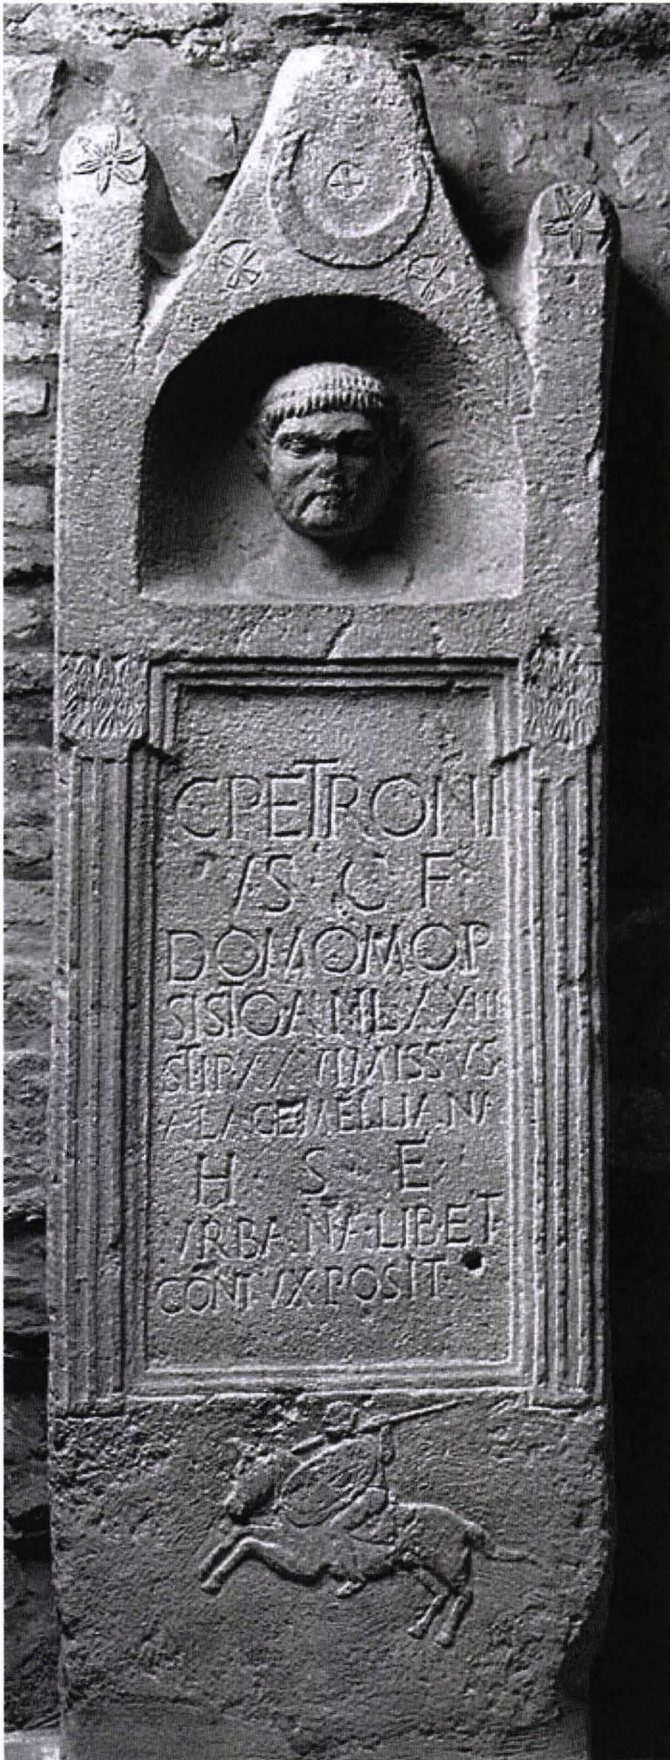 C PETRONI
VS · C · F ·
DOMO MOP
SISTO AN LXXIII
STIP XXVI MISSVS
ALA GEMELLIANA
H · S · E ·
VRBANA · LIB · ET ·
CONIVX · POSIT ·